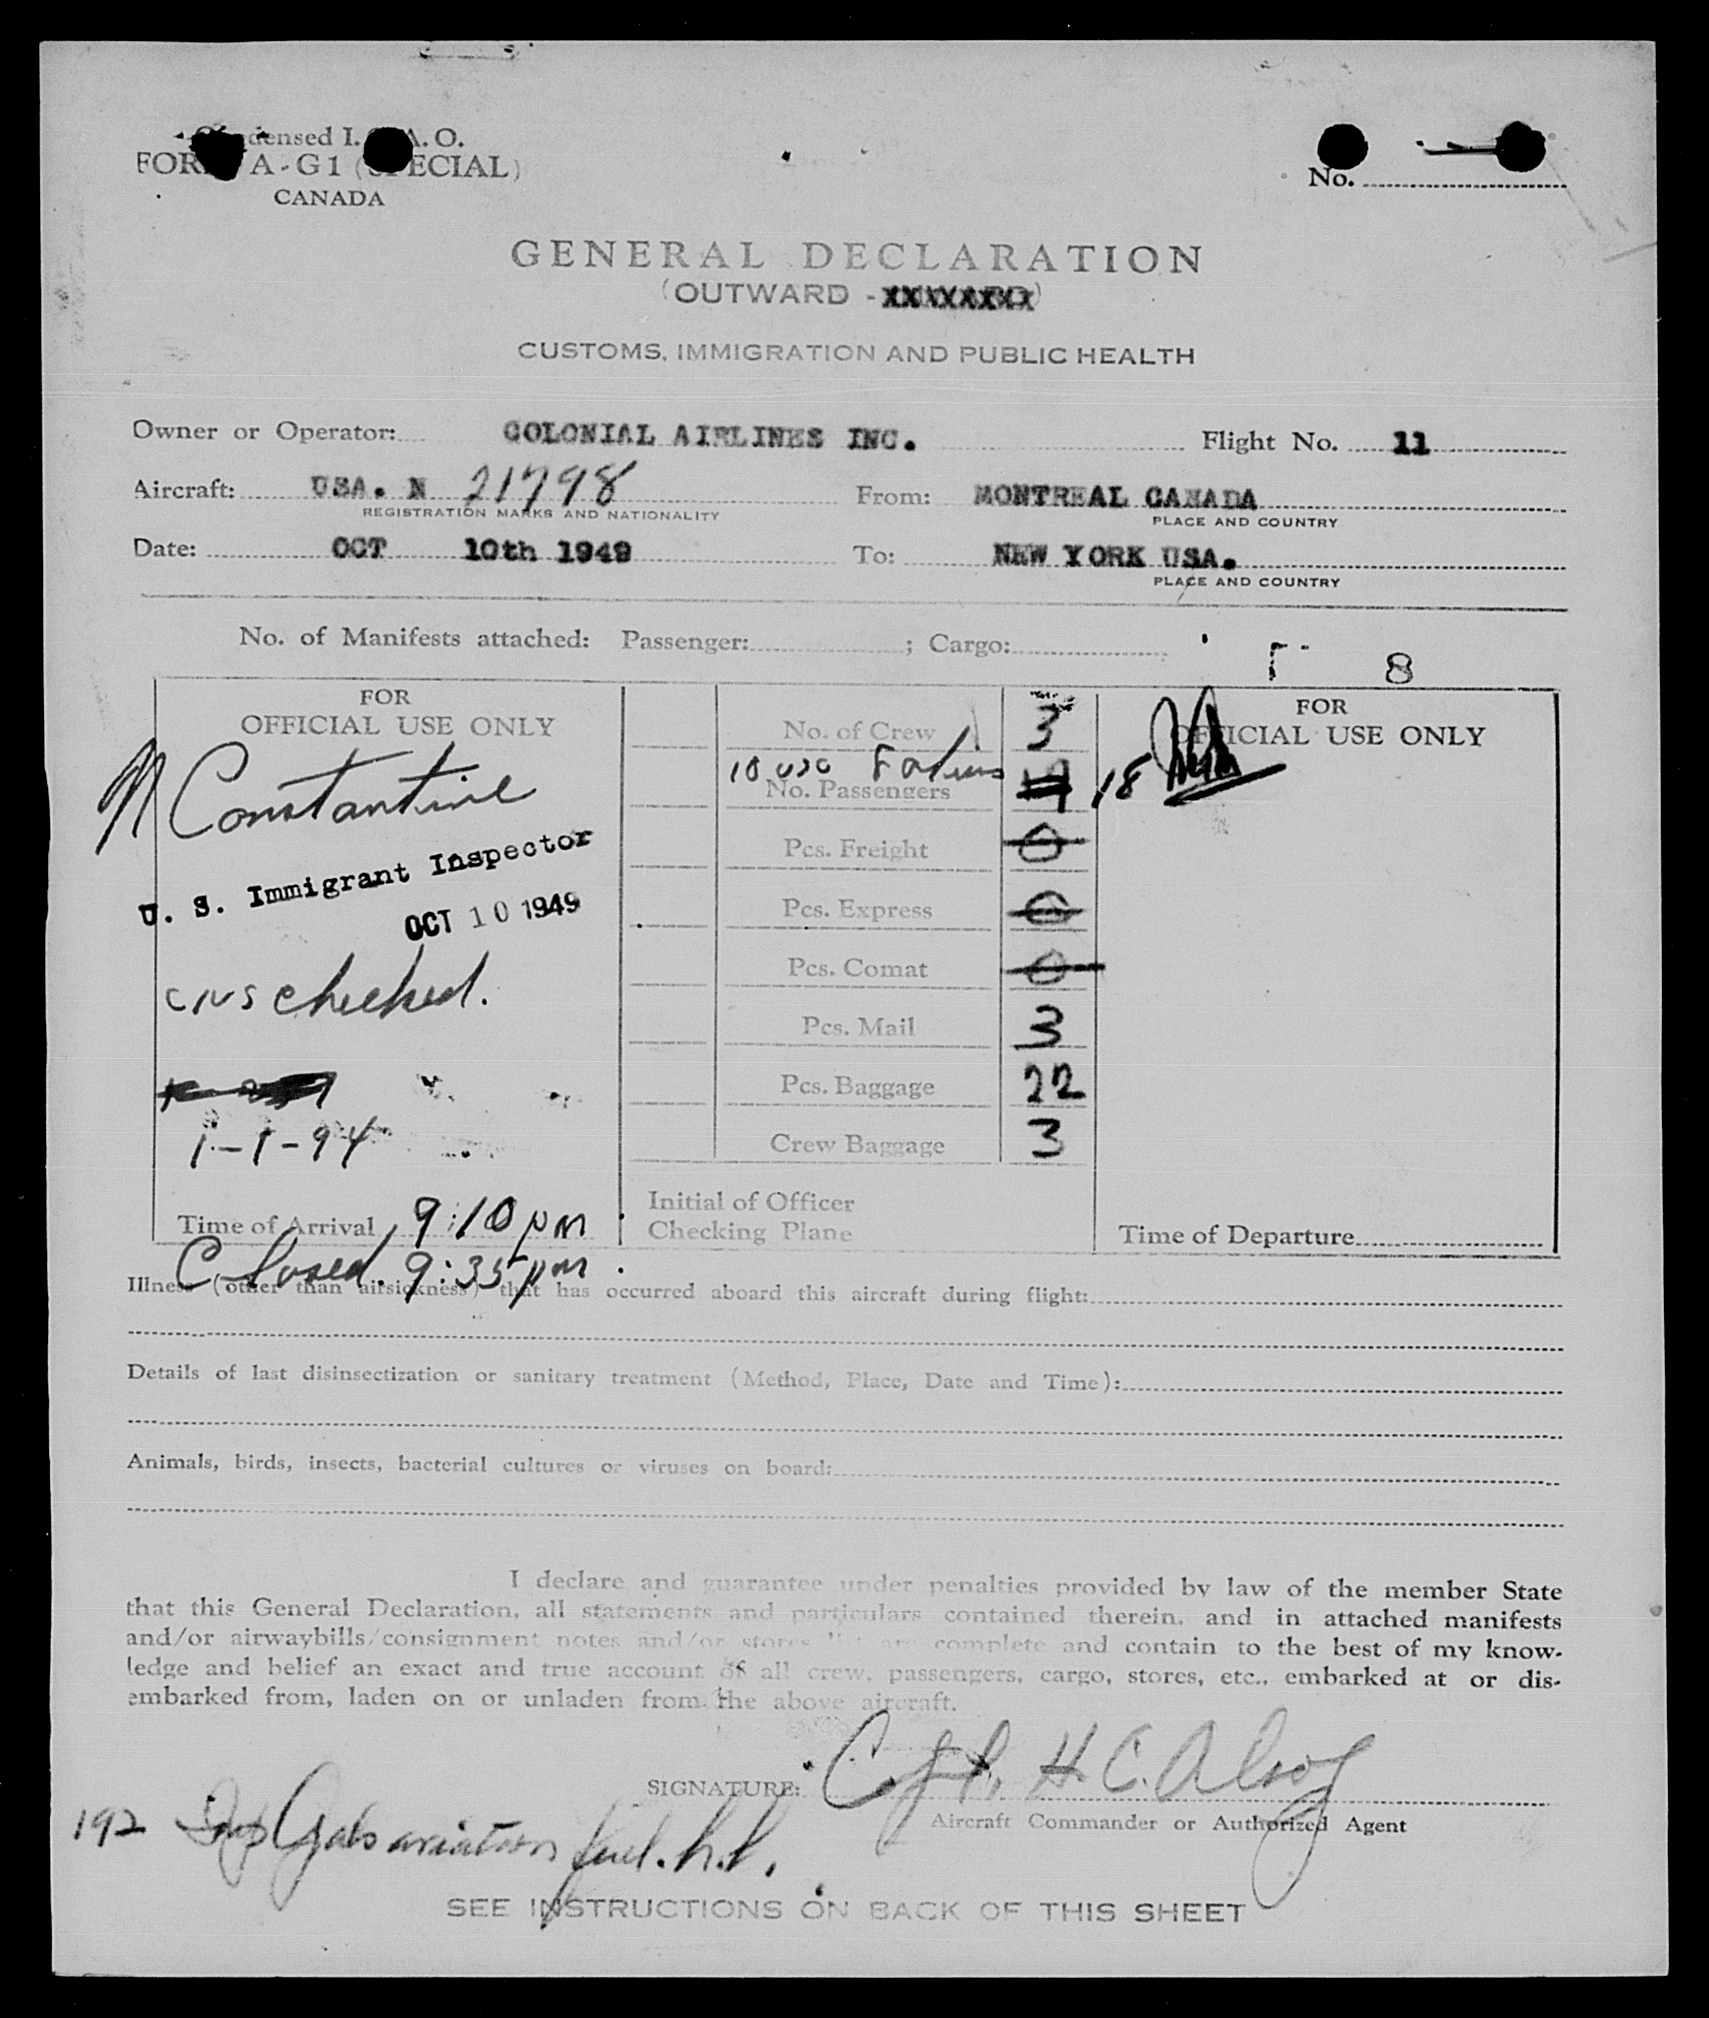 Condensed I.C.A.O.
FORM A-G1 (SPECIAL)
CANADA
No.
GENERAL DECLARATION
(OUTWARD - XXXXXXXX)
CUSTOMS, IMMIGRATION AND PUBLIC HEALTH
Owner or Operator: COLONIAL AIRLINES INC. Flight No. 11
Aircraft: USA. N 21798 From: MONTREAL CANADA
REGISTRATION MARKS AND NATIONALITY PLACE AND COUNTRY
Date: OCT 10th 1949 To: NEW YORK USA.
PLACE AND COUNTRY
No. of Manifests attached: Passenger: ; Cargo:
8
FOR
OFFICIAL USE ONLY
N Constantine
U. S. Immigrant Inspector
OCT 10 1949
checked.
1-1-94
Time of Arrival 9:10 pm
Closed. 9:35 pm.
No. of Crew 3
10 usc 8
No. Passengers 18
Pcs. Freight 0
Pcs. Express 0
Pcs. Comat 0
Pcs. Mail 3
Pcs. Baggage 22
Crew Baggage 3
Initial of Officer
Checking Plane
FOR
OFFICIAL USE ONLY
Time of Departure
Illness (other than airsickness) that has occurred aboard this aircraft during flight:
Details of last disinsectization or sanitary treatment (Method, Place, Date and Time):
Animals, birds, insects, bacterial cultures or viruses on board:
I declare and guarantee under penalties provided by law of the member State
that this General Declaration, all statements and particulars contained therein, and in attached manifests
and/or airwaybills/consignment notes and/or stores list are complete and contain to the best of my know-
ledge and belief an exact and true account of all crew, passengers, cargo, stores, etc., embarked at or dis-
embarked from, laden on or unladen from the above aircraft.
SIGNATURE: Capt. H. C. Alsop
Aircraft Commander or Authorized Agent
192 Imp Gals aviation fuel.
SEE INSTRUCTIONS ON BACK OF THIS SHEET